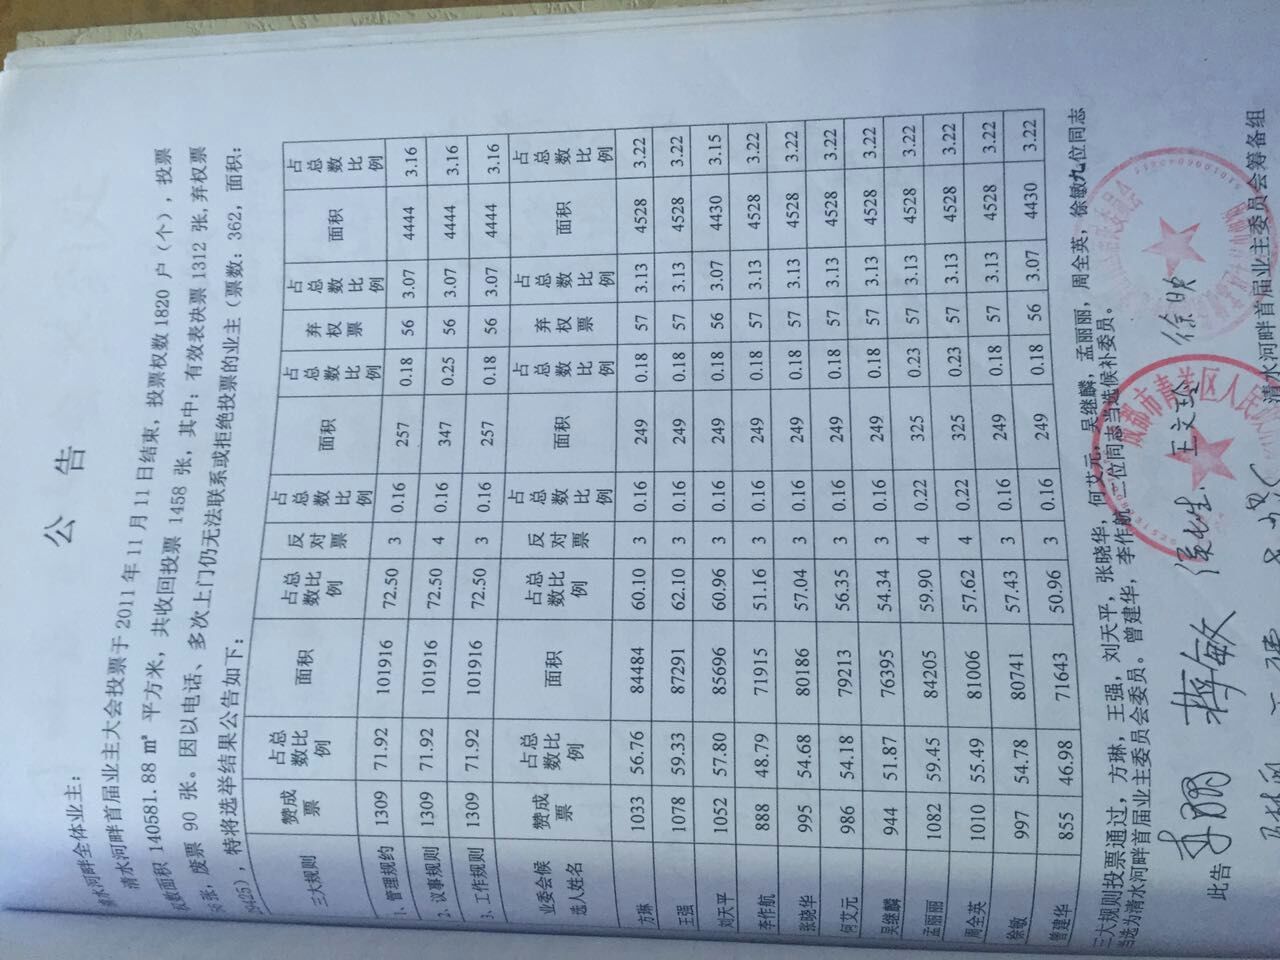 公 告
清水河畔全体业主：
清水河畔首届业主大会投票于 2011 年 11 月 11 日结束，投票权数 1820 户（个），投票
权数面积 140581.88 m² 平方米，共收回投票 1458 张，其中：有效表决票 1312 张，弃权票
张，废票 90 张。因以电话、多次上门仍无法联系或拒绝投票的业主（票数：362，面积：
），特将选举结果公告如下：
三大规则 赞成票 占总数比例 面积 占总数比例 反对票 占总数比例 面积 占总数比例 弃权票 占总数比例 面积 占总数比例
1、管理规约 1309 71.92 101916 72.50 3 0.16 257 0.18 56 3.07 4444 3.16
2、议事规则 1309 71.92 101916 72.50 4 0.16 347 0.25 56 3.07 4444 3.16
3、工作规则 1309 71.92 101916 72.50 3 0.16 257 0.18 56 3.07 4444 3.16
业委会候选人姓名 赞成票 占总数比例 面积 占总数比例 反对票 占总数比例 面积 占总数比例 弃权票 占总数比例 面积 占总数比例
方琳 1033 56.76 84484 60.10 3 0.16 249 0.18 57 3.13 4528 3.22
王强 1078 59.33 87291 62.10 3 0.16 249 0.18 57 3.13 4528 3.22
刘天平 1052 57.80 85696 60.96 3 0.16 249 0.18 56 3.07 4430 3.15
李作航 888 48.79 71915 51.16 3 0.16 249 0.18 57 3.13 4528 3.22
张晓华 995 54.68 80186 57.04 3 0.16 249 0.18 57 3.13 4528 3.22
何艾元 986 54.18 79213 56.35 3 0.16 249 0.18 57 3.13 4528 3.22
吴继麟 944 51.87 76395 54.34 3 0.16 249 0.18 57 3.13 4528 3.22
孟丽丽 1082 59.45 84205 59.90 4 0.22 325 0.23 57 3.13 4528 3.22
周全英 1010 55.49 81006 57.62 4 0.22 325 0.23 57 3.13 4528 3.22
徐敏 997 54.78 80741 57.43 3 0.16 249 0.18 57 3.13 4528 3.22
曾建华 855 46.98 71643 50.96 3 0.16 249 0.18 56 3.07 4430 3.22
三大规则投票通过，方琳，王强，刘天平，张晓华，何艾元，吴继麟，孟丽丽，周全英，徐敏九位同志
当选为清水河畔首届业主委员会委员。曾建华，李作航二位同志当选候补委员。
此告
成都市青羊区人民
清水河畔首届业主委员会筹备组